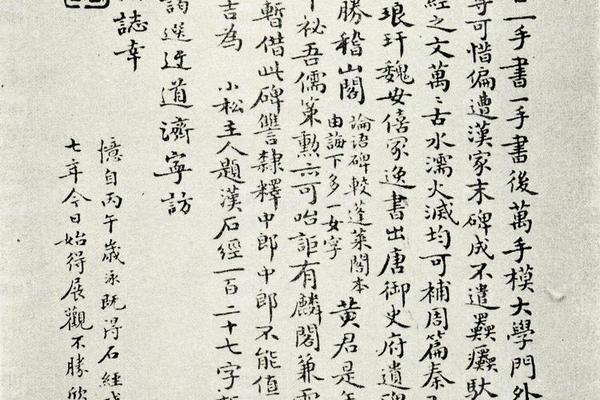 一手書一手書後萬手模大學門外
等可惜偏遭漢家末碑成不遣羸羸馱
經之文萬〻古水濡火滅均可補周篇秦
琅玕魏安僖冢逸書出唐御史府遺碑
勝稽山閣 論語碑較蓬萊閣本
由誨下多一女字 黃君是年
祕吾儒策勳亦可咍詎有麟閣兼雲
暫借此碑讐隸釋中郎中郎不能值
吉為 小松主人題漢石經一百二十七字
謁選迂道濟寧訪
誌幸
憶自丙午歲泳既得石經
七年今日始得展觀不勝欣